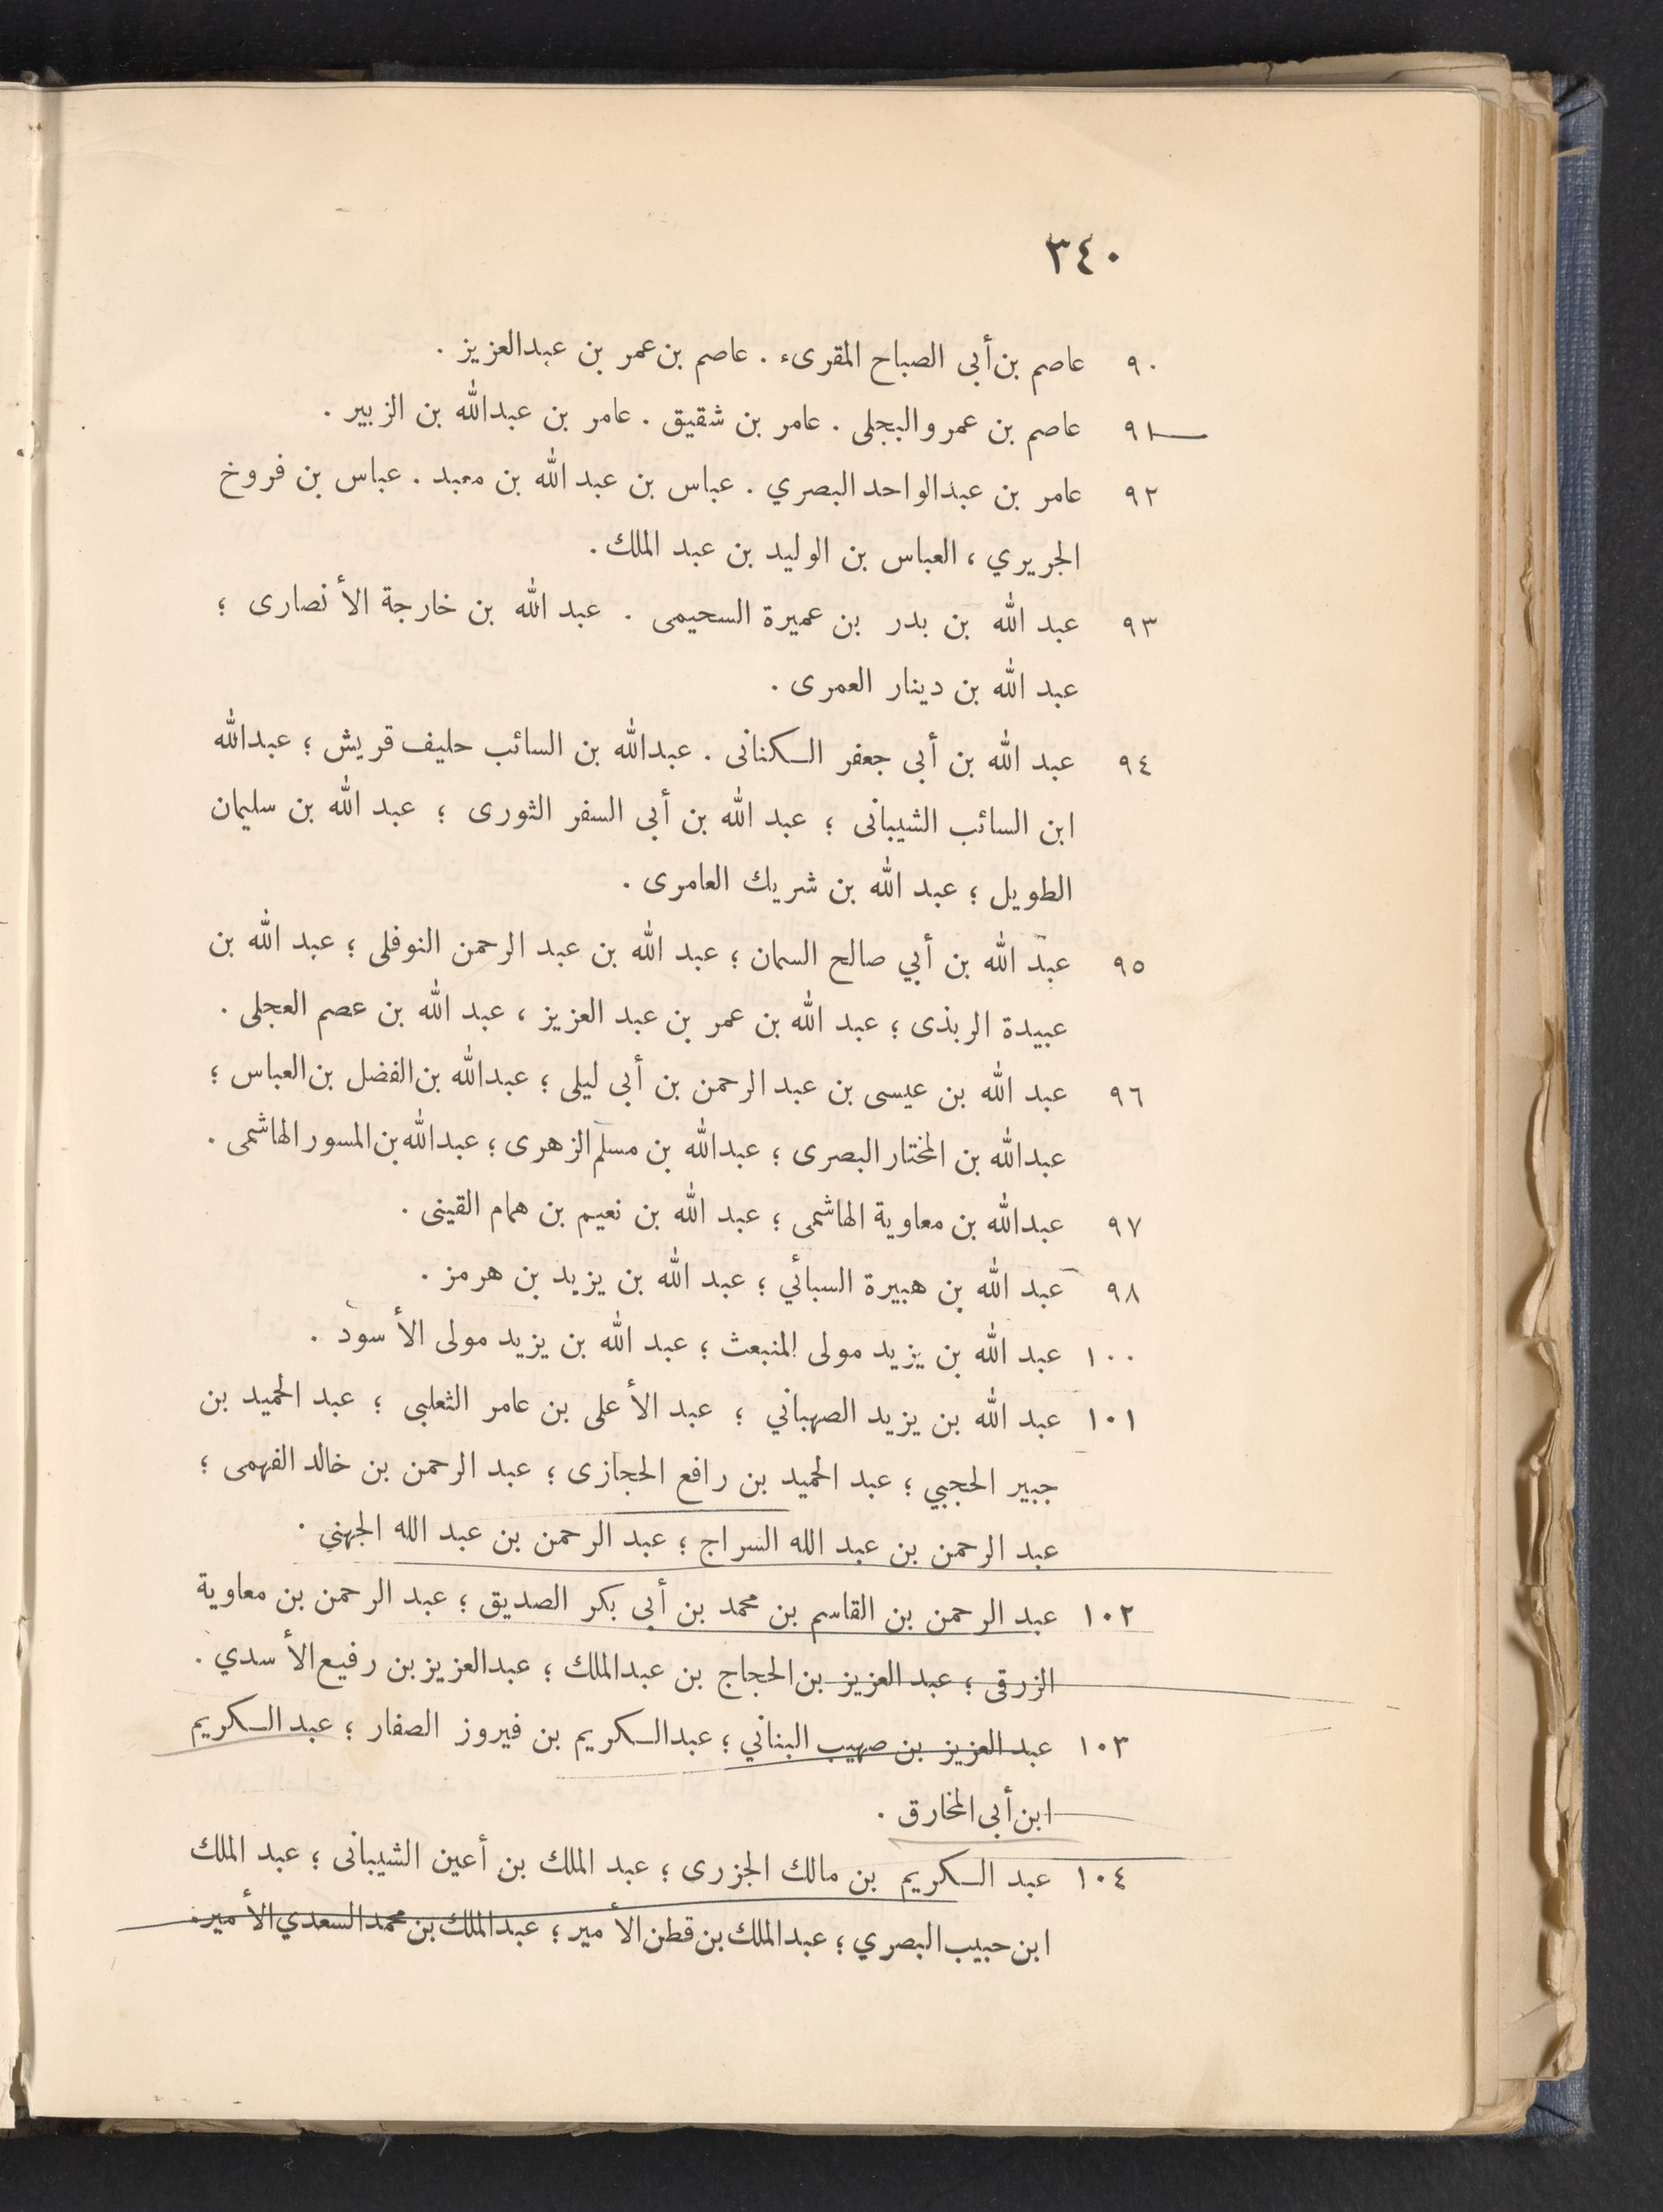 ٣٤٠
٩٠ عاصم بن أبى الصباح المقرىء . عاصم بن عمر بن عبدالعزيز .
٩١ عاصم بن عمرو البجلى . عامر بن شقيق . عامر بن عبدالله بن الزبير .
٩٢ عامر بن عبدالواحد البصري . عباس بن عبد الله بن معبد . عباس بن فروخ
الجريري ، العباس بن الوليد بن عبد الملك .
٩٣ عبد الله بن بدر بن عميرة السحيمى . عبد الله بن خارجة الأنصارى ؛
عبد الله بن دينار العمرى .
٩٤ عبد الله بن أبى جعفر الكنانى . عبدالله بن السائب حليف قريش ؛ عبدالله
ابن السائب الشيبانى ؛ عبد الله بن أبى السفر الثورى ؛ عبد الله بن سليمان
الطويل ؛ عبد الله بن شريك العامرى .
٩٥ عبد الله بن أبي صالح السمان ؛ عبد الله بن عبد الرحمن النوفلى ؛ عبد الله بن
عبيدة الربذى ؛ عبد الله بن عمر بن عبد العزيز ، عبد الله بن عصم العجلى .
٩٦ عبد الله بن عيسى بن عبد الرحمن بن أبى ليلى ؛ عبدالله بن الفضل بن العباس ؛
عبدالله بن المختار البصرى ؛ عبدالله بن مسلم الزهرى ؛ عبدالله بن المسور الهاشمى .
٩٧ عبدالله بن معاوية الهاشمى ؛ عبد الله بن نعيم بن همام القينى .
٩٨ عبد الله بن هبيرة السبائي ؛ عبد الله بن يزيد بن هرمز .
١٠٠ عبد الله بن يزيد مولى المنبعث ؛ عبد الله بن يزيد مولى الأسود .
١٠١ عبد الله بن يزيد الصهباني ؛ عبد الأعلى بن عامر الثعلبى ؛ عبد الحميد بن
جبير الحجبي ؛ عبد الحميد بن رافع الحجازى ؛ عبد الرحمن بن خالد الفهمى ؛
عبد الرحمن بن عبد الله السراج ؛ عبد الرحمن بن عبد الله الجهني .
١٠٢ عبد الرحمن بن القاسم بن محمد بن أبى بكر الصديق ؛ عبد الرحمن بن معاوية
الزرقى ؛ عبد العزيز بن الحجاج بن عبدالملك ؛ عبدالعزيز بن رفيع الأسدي .
١٠٣ عبد العزيز بن صهيب البناني ؛ عبدالكريم بن فيروز الصفار ؛ عبد الكريم
ابن أبى المخارق .
١٠٤ عبد الكريم بن مالك الجزرى ؛ عبد الملك بن أعين الشيبانى ؛ عبد الملك
ابن حبيب البصري ؛ عبدالملك بن قطن الأمير ؛ عبدالملك بن محمد السعدي الأمير .